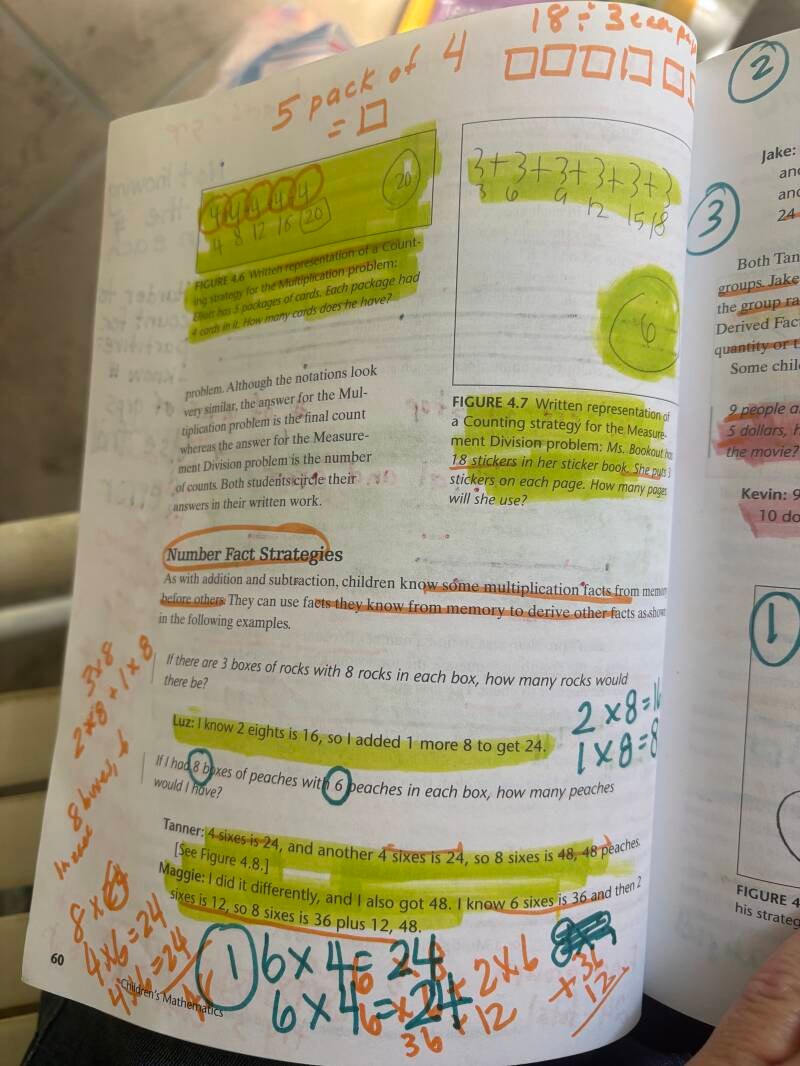 18 ÷ 3 each page
5 pack of 4
= □
4 4 4 4 4
4 8 12 16 20
20
FIGURE 4.6 Written representation of a Count-
ing strategy for the Multiplication problem:
Elliott has 5 packages of cards. Each package had
4 cards in it. How many cards does he have?
problem. Although the notations look
very similar, the answer for the Mul-
tiplication problem is the final count
whereas the answer for the Measure-
ment Division problem is the number
of counts. Both students circle their
answers in their written work.
3+3+3+3+3+3
3 6 9 12 15 18
6
FIGURE 4.7 Written representation of
a Counting strategy for the Measure-
ment Division problem: Ms. Bookout has
18 stickers in her sticker book. She puts 3
stickers on each page. How many pages
will she use?
Number Fact Strategies
As with addition and subtraction, children know some multiplication facts from memory
before others. They can use facts they know from memory to derive other facts as shown
in the following examples.
If there are 3 boxes of rocks with 8 rocks in each box, how many rocks would
there be?
Luz: I know 2 eights is 16, so I added 1 more 8 to get 24.
2 x 8 = 16
1 x 8 = 8
If I had 8 boxes of peaches with 6 peaches in each box, how many peaches
would I have?
Tanner: 4 sixes is 24, and another 4 sixes is 24, so 8 sixes is 48, 48 peaches.
[See Figure 4.8.]
Maggie: I did it differently, and I also got 48. I know 6 sixes is 36 and then 2
sixes is 12, so 8 sixes is 36 plus 12, 48.
3x8
2x8 + 1x8
8 boxes, 6
8 x 6
4x6=24
4x6=24
1
6 x 4 = 24
6 x 4 = 24
2x6
36 + 12
36
+ 12
60
Children's Mathematics
2
Jake:
and
and
24
3
Both Tan
groups. Jake
the group ra
Derived Fac
quantity or t
Some chil
9 people a
5 dollars, h
the movie?
Kevin: 9
10 do
1
FIGURE 4
his strateg